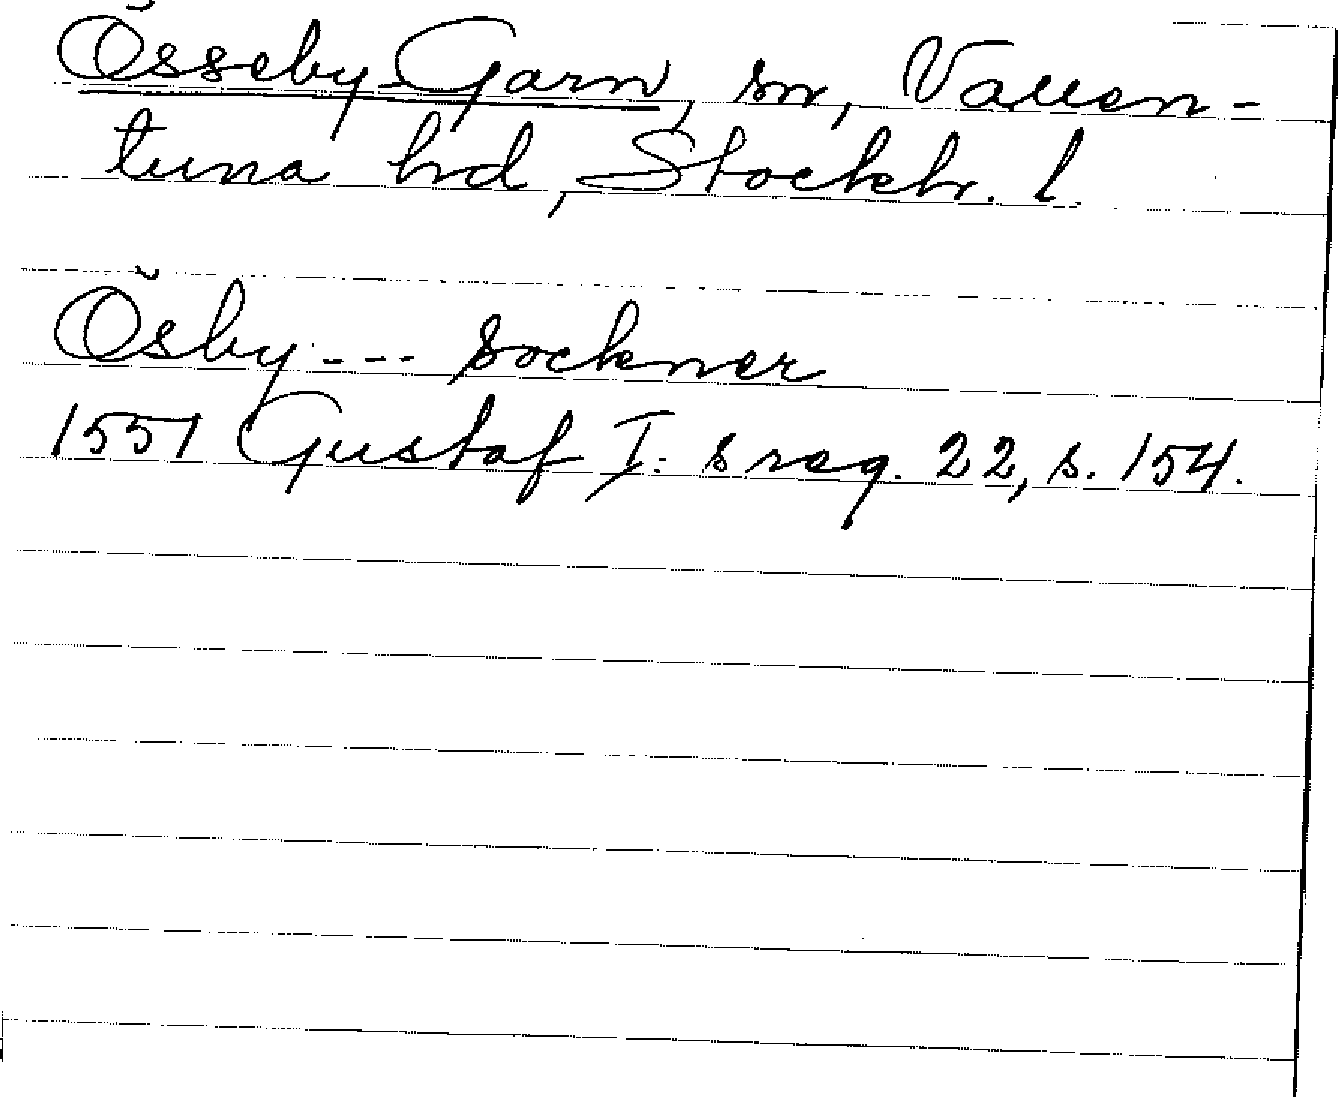 Össeby-Garn, sn, Vallen-
tuna hd, Stockh. l.
Ösby --- sockner
1551 Gustaf I:s reg. 22, s. 154.